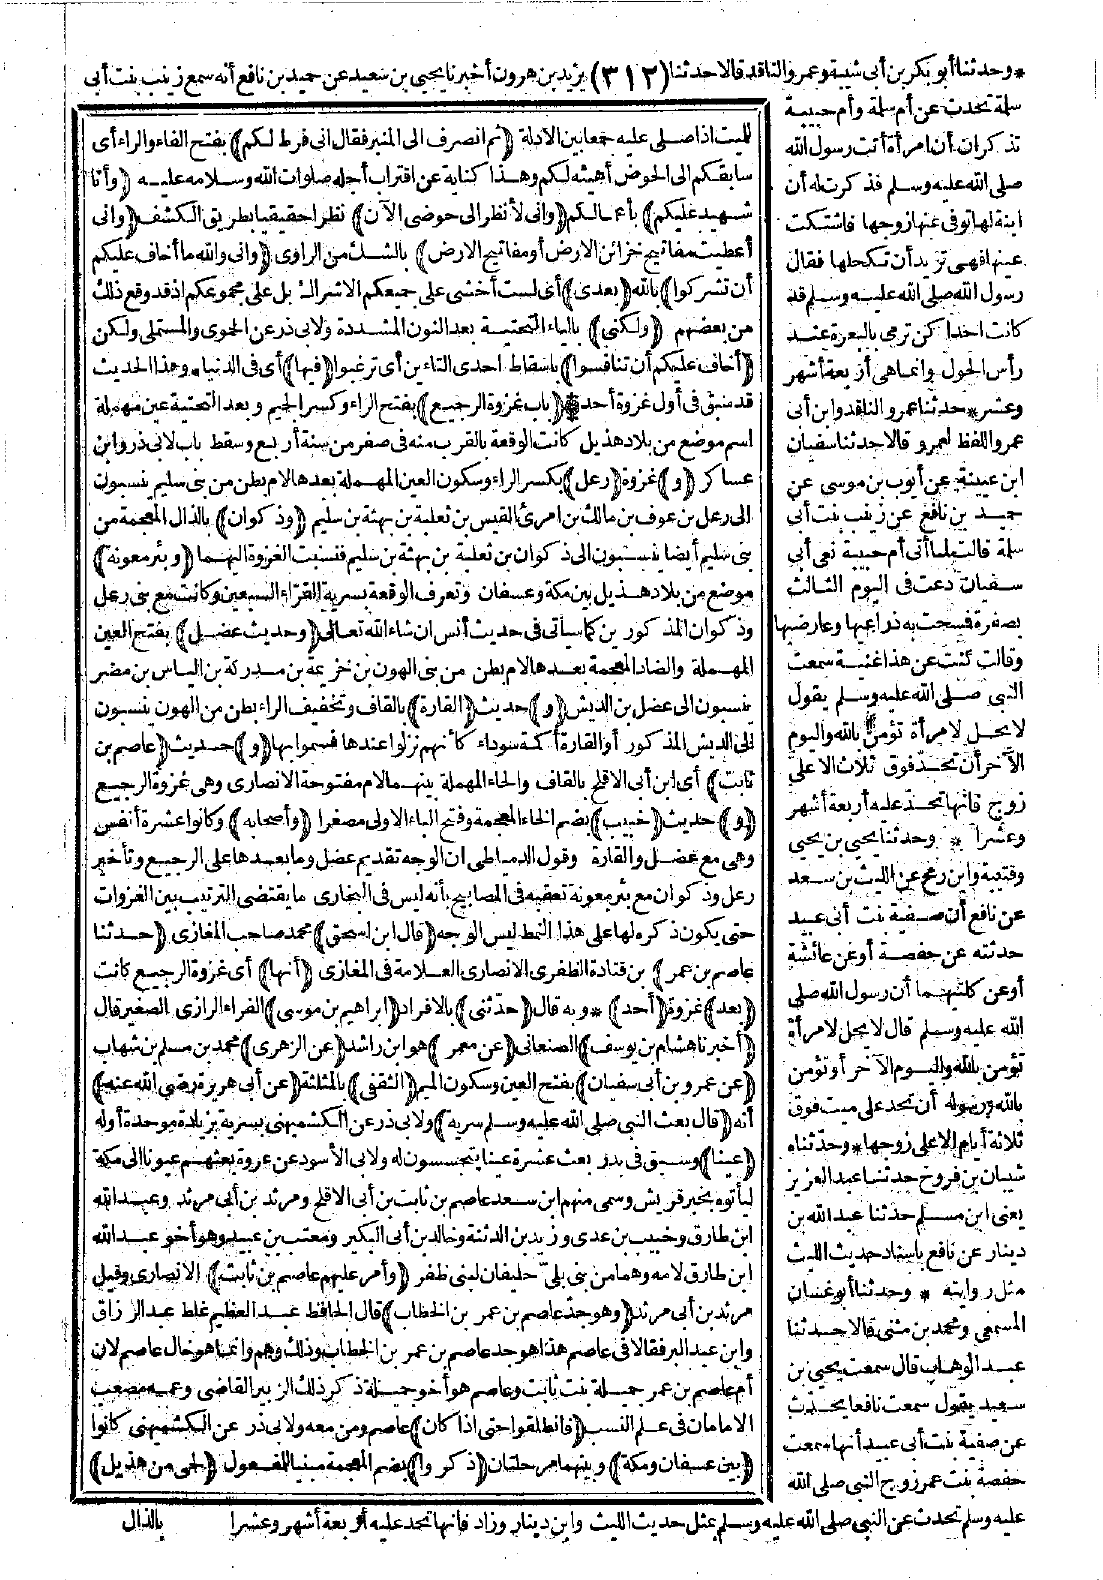 * وحدثنا أبو بكر بن أبى شيبة وعمرو الناقد قالا حدثنا (٣١٢) يزيد بن هرون أخبرنا يحيى بن سعيد عن حميد بن نافع أنه سمع زينب بنت أبى
سلمة تحدث عن أم سلمة وأم حبيبة
تذكران أن امرأة أتت رسول الله
صلى الله عليه وسلم فذكرت له أن
ابنة لها توفى عنها زوجها فاشتكت
عينها فهى تريد أن تكحلها فقال
رسول الله صلى الله عليه وسلم قد
كانت احداكن ترمى بالبعرة عند
رأس الحول وانما هى أربعة أشهر
وعشر * حدثنا عمرو الناقد وابن أبى
عمر واللفظ لعمرو قالا حدثنا سفيان
ابن عيينة عن أيوب بن موسى عن
حميد بن نافع عن زينب بنت أبى
سلمة قالت لما أتى أم حبيبة نعى أبى
سفيان دعت فى اليوم الثالث
بصفرة فمسحت به ذراعيها وعارضيها
وقالت كنت عن هذا غنية سمعت
النبى صلى الله عليه وسلم يقول
لا يحل لامرأة تؤمن بالله واليوم
الآخر أن تحد فوق ثلاث الا على
زوج فانها تحد عليه أربعة أشهر
وعشرا * وحدثنا يحيى بن يحيى
وقتيبة وابن رمح عن الليث بن سعد
عن نافع أن صفية بنت أبى عبيد
حدثته عن حفصة أو عن عائشة
أو عن كلتيهما أن رسول الله صلى
الله عليه وسلم قال لا يحل لامرأة
تؤمن بالله واليوم الآخر أو تؤمن
بالله ورسوله أن تحد على ميت فوق
ثلاثة أيام الا على زوجها * وحدثناه
شيبان بن فروخ حدثنا عبد العزيز
يعنى ابن مسلم حدثنا عبد الله بن
دينار عن نافع باسناد حديث الليث
مثل روايته * وحدثنا أبو غسان
المسمعى ومحمد بن مثنى قالا حدثنا
عبد الوهاب قال سمعت يحيى بن
سعيد يقول سمعت نافعا يحدث
عن صفية بنت أبى عبيد أنها سمعت
حفصة بنت عمر زوج النبى صلى الله
عليه وسلم تحدث عن النبى صلى الله عليه وسلم بمثل حديث الليث وابن دينار وزاد فانها تحد عليه أربعة أشهر وعشرا
للميت اذا صلى عليه جمعا بين الادلة (ثم انصرف الى المنبر فقال انى فرط لكم) بفتح الفاء والراء أى
سابقكم الى الحوض أهيئه لكم وهذا كناية عن اقتراب أجله صلوات الله وسلامه عليه (وأنا
شهيد عليكم) بأعمالكم (وانى لأنظر الى حوضى الآن) نظرا حقيقيا بطريق الكشف (وانى
أعطيت مفاتيح خزائن الارض أو مفاتيح الارض) بالشك من الراوى (وانى والله ما أخاف عليكم
أن تشركوا) بالله (بعدى) أى لست أخشى على جميعكم الاشراك بل على مجموعكم اذ قد وقع ذلك
من بعضهم (ولكنى) بالياء التحتية بعد النون المشددة ولابى ذر عن الحموى والمستملى ولكن
(أخاف عليكم أن تنافسوا) باسقاط احدى التاءين أى ترغبوا (فيها) أى فى الدنيا * وهذا الحديث
قد سبق فى أول غزوة أحد * (باب غزوة الرجيع) بفتح الراء وكسر الجيم وبعد التحتية عين مهملة
اسم موضع من بلاد هذيل كانت الوقعة بالقرب منه فى صفر من سنة أربع وسقط باب لابى ذر وابن
عساكر (و) غزوة (رعل) بكسر الراء وسكون العين المهملة بعدها لام بطن من بنى سليم ينسبون
الى رعل بن عوف بن مالك بن امرئ القيس بن ثعلبة بن بهثة بن سليم (وذكوان) بالذال المعجمة من
بنى سليم أيضا ينسبون الى ذكوان بن ثعلبة بن بهثة بن سليم فنسبت الغزوة اليهما (وبئر معونة)
موضع من بلاد هذيل بين مكة وعسفان وتعرف الوقعة بسرية القراء السبعين وكانت مع بنى رعل
وذكوان المذكورين كما سيأتى فى حديث أنس ان شاء الله تعالى (وحديث عضل) بفتح العين
المهملة والضاد المعجمة بعدها لام بطن من بنى الهون بن خزيمة بن مدركة بن الياس بن مضر
ينسبون الى عضل بن الديش (و) حديث (القارة) بالقاف وتخفيف الراء بطن من الهون ينسبون
الى الديش المذكور أو القارة أكمة سوداء كأنهم نزلوا عندها فسموا بها (و) حديث (عاصم بن
ثابت) أى ابن أبى الاقلح بالقاف والحاء المهملة بينهما لام مفتوحة الانصارى وهى غزوة الرجيع
(و) حديث (خبيب) بضم الخاء المعجمة وفتح الباء الاولى مصغرا (وأصحابه) وكانوا عشرة أنفس
وهى مع عضل والقارة وقول الدمياطى ان الوجه تقديم عضل وما بعدها على الرجيع وتأخير
رعل وذكوان مع بئر معونة تعقبه فى المصابيح بأنه ليس فى البخارى ما يقتضى الترتيب بين الغزوات
حتى يكون ذكره لها على هذا النمط ليس الوجه (قال ابن اسحق) محمد صاحب المغازى (حدثنا
عاصم بن عمر) بن قتادة الظفرى الانصارى العلامة فى المغازى (أنها) أى غزوة الرجيع كانت
(بعد) غزوة (أحد) * وبه قال (حدثنى) بالافراد (ابراهيم بن موسى) الفراء الرازى الصغير قال
(أخبرنا هشام بن يوسف) الصنعانى (عن معمر) هو ابن راشد (عن الزهرى) محمد بن مسلم بن شهاب
(عن عمرو بن أبى سفيان) بفتح العين وسكون الميم (الثقفى) بالمثلثة (عن أبى هريرة رضى الله عنه)
أنه (قال بعث النبى صلى الله عليه وسلم سرية) ولابى ذر عن الكشميهنى بسرية بزيادة موحدة أوله
(عينا) وسبق فى بدر بعث عشرة عينا يتجسسون له ولابى الأسود عن عروة بعثهم عيونا الى مكة
ليأتوه بخبر قريش وسمى منهم ابن سعد عاصم بن ثابت بن أبى الاقلح ومرثد بن أبى مرثد وعبد الله
ابن طارق وخبيب بن عدى وزيد بن الدثنة وخالد بن أبى البكير ومعتب بن عبيد وهو أخو عبد الله
ابن طارق لامه وهما من بنى بلىّ حليفان لبنى ظفر (وأمر عليهم عاصم بن ثابت) الانصارى وقيل
مرثد بن أبى مرثد (وهو جد عاصم بن عمر بن الخطاب) قال الحافظ عبد العظيم غلط عبد الرزاق
وابن عبد البر فقالا فى عاصم هذا هو جد عاصم بن عمر بن الخطاب وذلك وهم وانما هو خال عاصم لان
أم عاصم بن عمر جميلة بنت ثابت وعاصم هو أخو جميلة ذكر ذلك الزبير القاضى وعمه مصعب
الامامان فى علم النسب (فانطلقوا حتى اذا كان) عاصم ومن معه ولابى ذر عن الكشميهنى كانوا
(بين عسفان ومكة) وبينهما مرحلتان (ذكروا) بضم المعجمة مبنيا للمفعول (لحى من هذيل)
بالذال